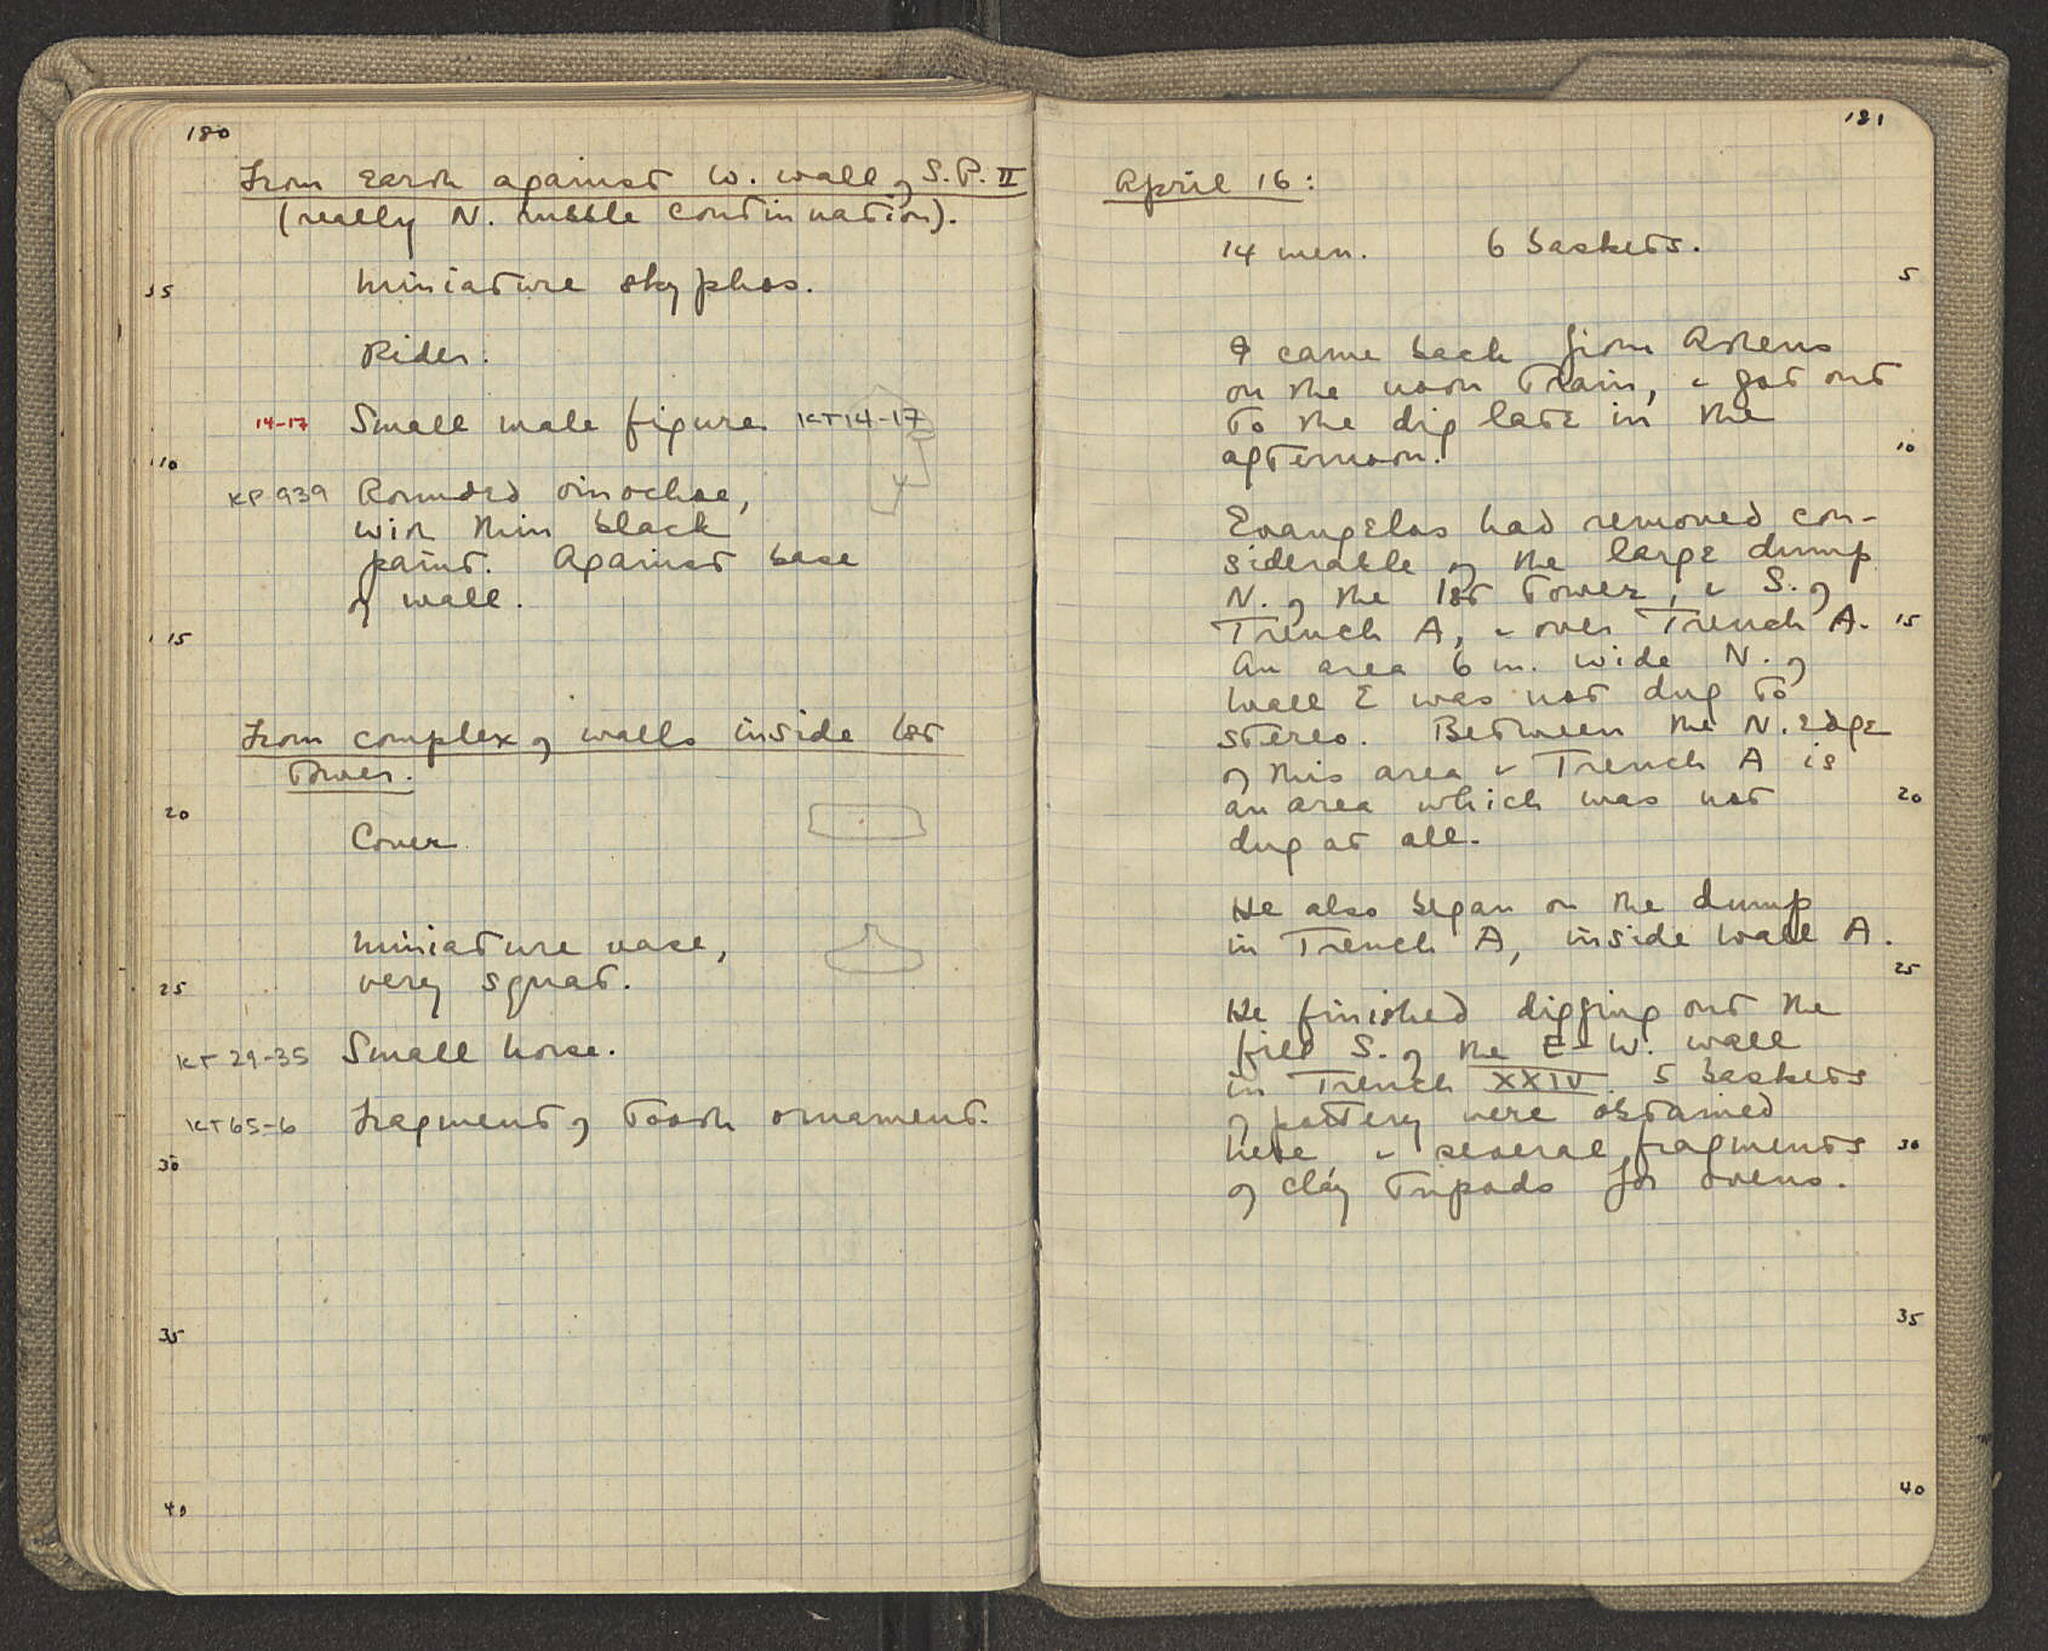 180
From earth against W. wall of S.P. II
(really N. rubble continuation).
5
Miniature skyphos.
Rider.
14-17 Small male figure KT14-17
10
KP 939 Rounded oinochoe,
with thin black
paint. Against base
of wall.
15
From complex of walls inside 1st
Tower.
20
Cover
Miniature vase,
very squat.
25
KT 29-35 Small horse.
KT65-6 Fragment of Tooth ornament.
30
35
40
181
April 16:
14 men. 6 baskets.
5
I came back from Athens
on the noon Train, & got out
to the dig late in the
afternoon.
10
Evangelos had removed con-
siderable of the large dump
N. of the 1st Tower, & S. of
Trench A, & over Trench A.
15
An area 6 m. wide N. of
Wall E was not dug to
stereo. Between the N. edge
of this area & Trench A is
an area which was not
20
dug at all.
He also began on the dump
in Trench A, inside Wall A.
25
He finished digging out the
fill S. of the E-W. wall
in Trench XXIV. 5 baskets
of pottery were obtained
here & several fragments
30
of clay Tripods for ovens.
35
40